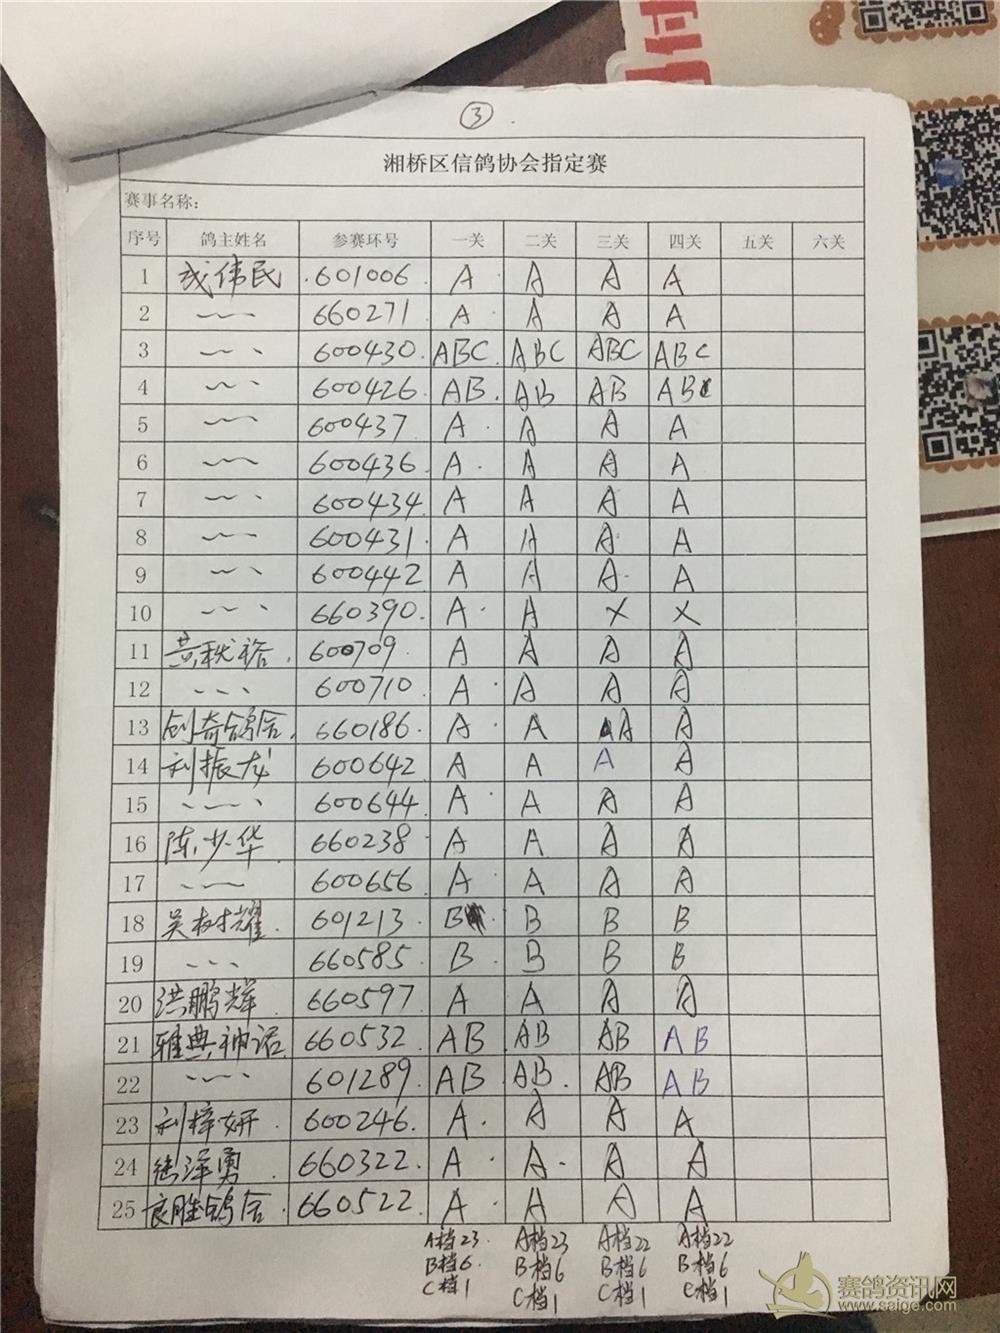 ③
湘桥区信鸽协会指定赛
赛事名称:
序号 鸽主姓名 参赛环号 一关 二关 三关 四关 五关 六关
1 成伟民 601006 A A A A
2 660271 A A A A
3 600430 ABC ABC ABC ABC
4 600426 AB AB AB AB
5 600437 A A A A
6 600436 A A A A
7 600434 A A A A
8 600431 A A A A
9 600442 A A A A
10 660390 A A X X
11 黄秋裕 600709 A A A A
12 600710 A A A A
13 创奇鸽舍 660186 A A A A
14 刘振龙 600642 A A A A
15 600644 A A A A
16 陈少华 660238 A A A A
17 600656 A A A A
18 吴树耀 601213 B B B B
19 660585 B B B B
20 洪鹏辉 660597 A A A A
21 雅典神话 660532 AB AB AB AB
22 601289 AB AB AB AB
23 刘梓妍 600246 A A A A
24 泽勇 660322 A A A A
25 良胜鸽舍 660522 A A A A
A档23 A档23 A档22 A档22
B档6 B档6 B档6 B档6
C档1 C档1 C档1 C档1
赛鸽资讯网
www.saige.com